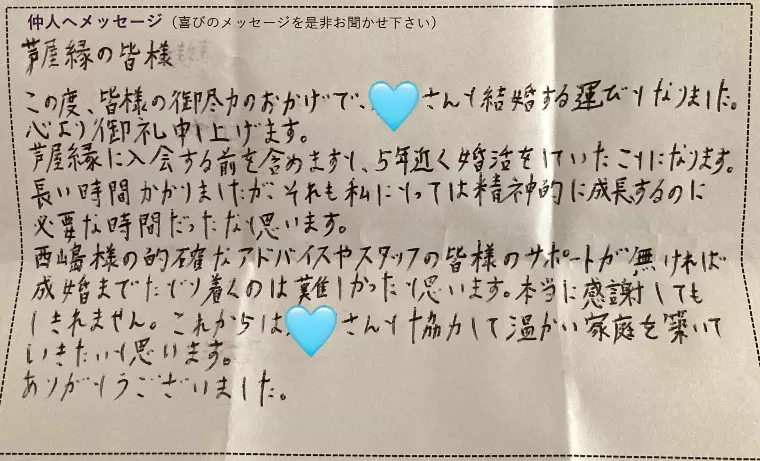 仲人へメッセージ（喜びのメッセージを是非お聞かせ下さい）
芦屋縁の皆様
この度、皆様の御尽力のおかげで、さんと結婚する運びとなりました。
心より御礼申し上げます。
芦屋縁に入会する前を含めますと、5年近く婚活をしていたことになります。
長い時間かかりましたが、それも私にとっては精神的に成長するのに
必要な時間だったなと思います。
西嶋様の的確なアドバイスやスタッフの皆様のサポートが無ければ
成婚までたどり着くのは難しかったと思います。本当に感謝しても
しきれません。これからは、さんと協力して温かい家庭を築いて
いきたいと思います。
ありがとうございました。